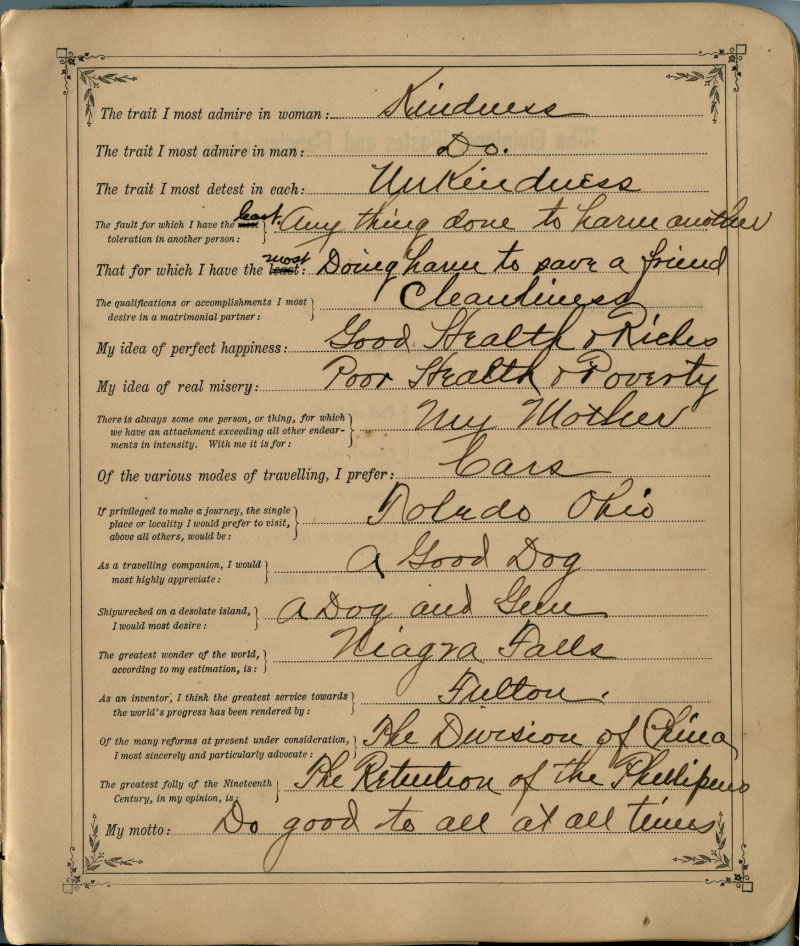 The trait I most admire in woman: Kindness
The trait I most admire in man: Do.
The trait I most detest in each: UnKindness
The fault for which I have the least toleration in another person: Any thing done to harm another
That for which I have the most least: Doing harm to save a friend
The qualifications or accomplishments I most
desire in a matrimonial partner: Cleanliness
My idea of perfect happiness: Good Health & Riches
My idea of real misery: Poor Health & Poverty
There is always some one person, or thing, for which
we have an attachment exceeding all other endear-
ments in intensity. With me it is for: My Mother
Of the various modes of travelling, I prefer: Cars
If privileged to make a journey, the single
place or locality I would prefer to visit,
above all others, would be: Toledo Ohio
As a travelling companion, I would
most highly appreciate: A Good Dog
Shipwrecked on a desolate island,
I would most desire: A Dog and Gun
The greatest wonder of the world,
according to my estimation, is: Niagra Falls
As an inventor, I think the greatest service towards
the world's progress has been rendered by: Fulton.
Of the many reforms at present under consideration,
I most sincerely and particularly advocate: The Division of China
The greatest folly of the Nineteenth
Century, in my opinion, is: The Retention of the Phillipens
My motto: Do good to all at all times